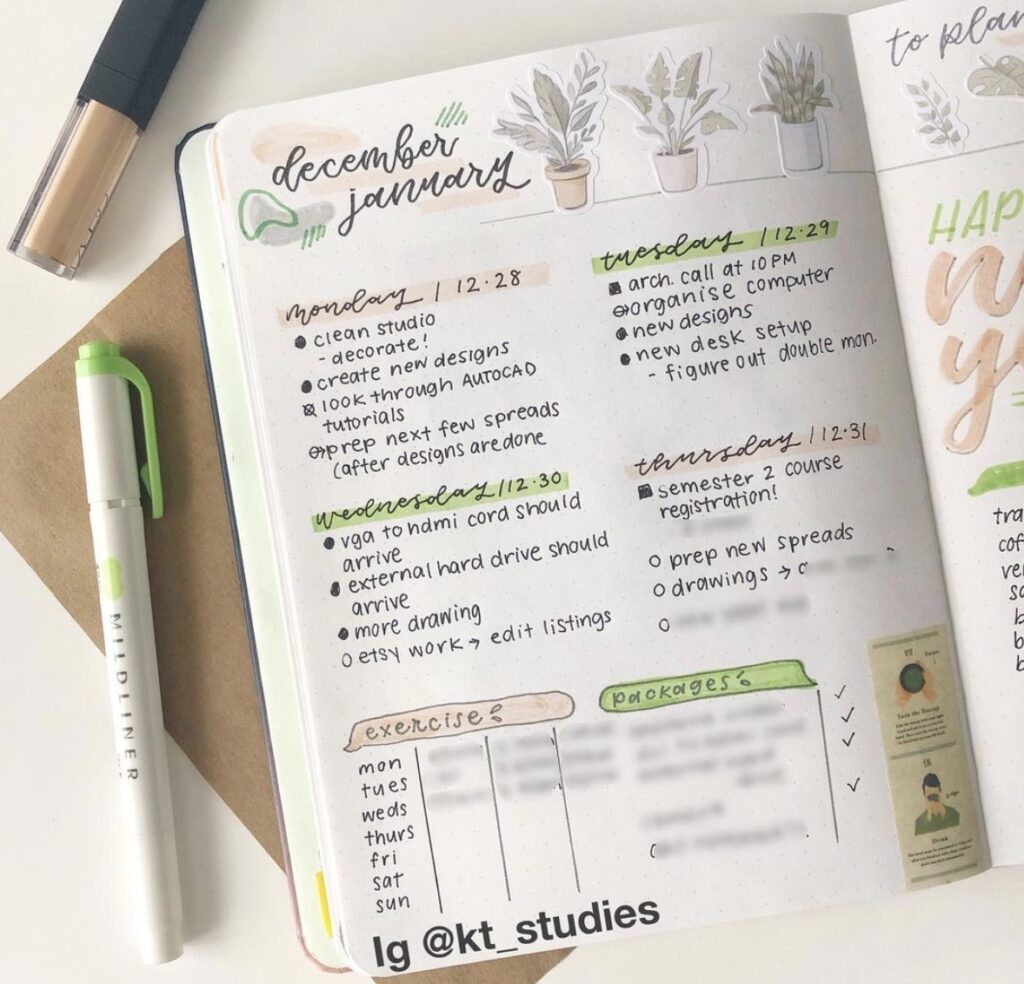 december
january
monday / 12.28
clean studio
- decorate!
create new designs
look through AUTOCAD
tutorials
prep next few spreads
(after designs are done
tuesday / 12.29
arch. call at 10 PM
organise computer
new designs
new desk setup
- figure out double mon.
wednesday / 12.30
vga to hdmi cord should
arrive
external hard drive should
arrive
more drawing
etsy work → edit listings
thursday / 12.31
semester 2 course
registration!
prep new spreads
drawings →
exercise:
mon
tues
weds
thurs
fri
sat
sun
packages:
Turn the Teacup
Drink
Ig @kt_studies
MILDLINER
to plan
HAP